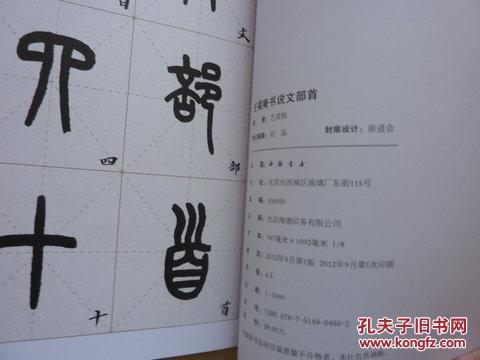 首
文
部
首
四
十
王福庵书说文部首
艺美联
刘深
封扉设计：徐道会
中国书店
址：北京市西城区琉璃厂东街115号
编：100050
刷：北京海德印务有限公司
本：787毫米×1092毫米 1/8
版次：2012年9月第1版 2012年9月第1次印刷
张：6.5
数：1-3000
号：ISBN 978-7-5149-0480-2
价：28.00元
如有印装质量不合格者，本社负责调换。
孔夫子旧书网
www.kongfz.com